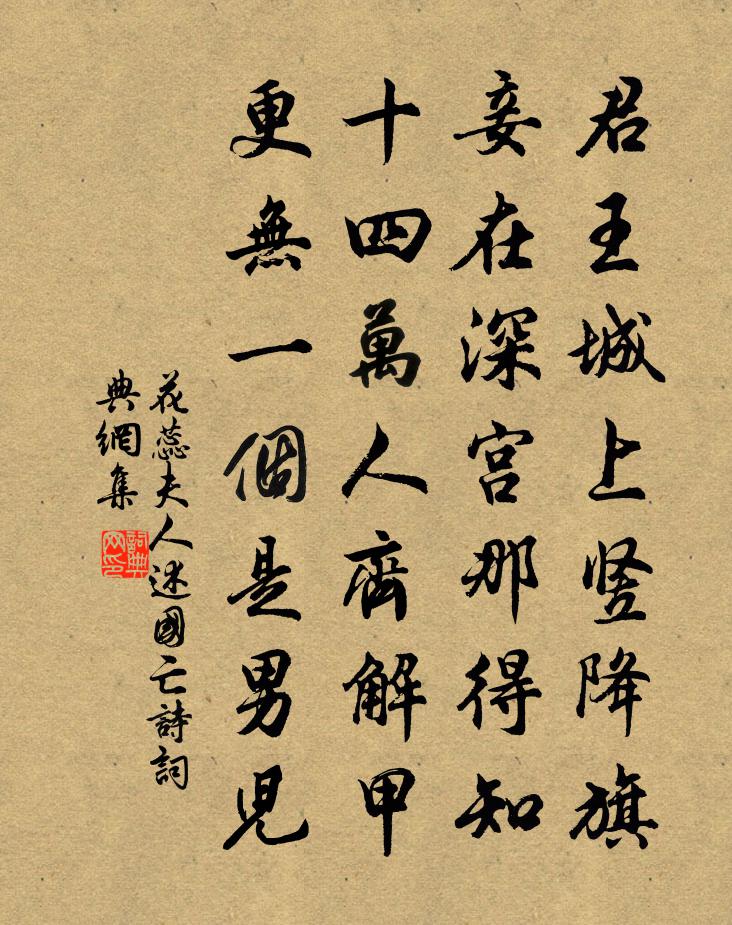 君王城上竖降旗
妾在深宫那得知
十四萬人齊解甲
更無一個是男兒
花蕊夫人述國亡詩詞
典網集
詞典网印